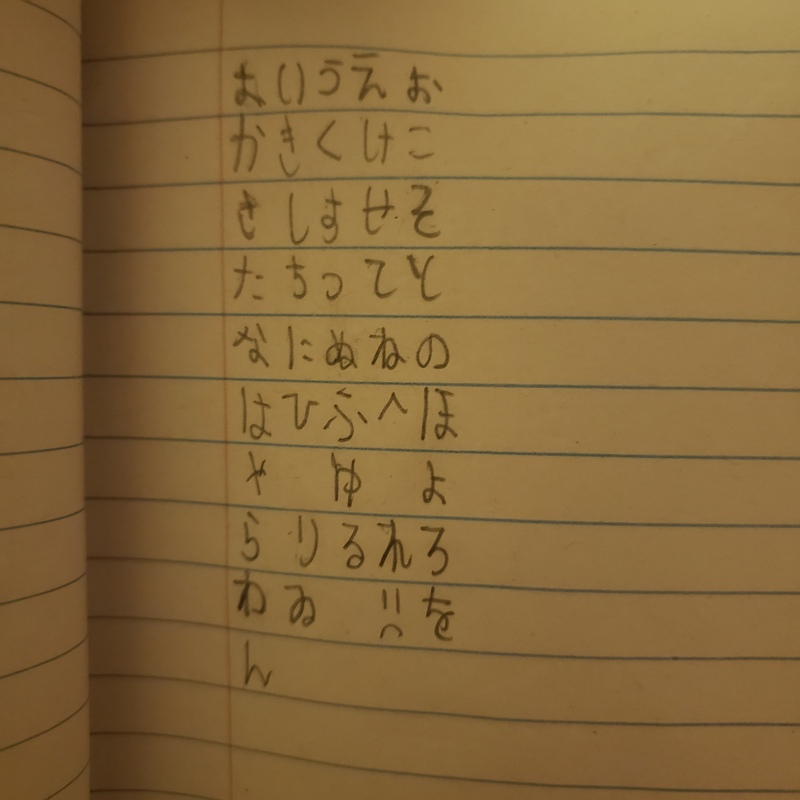 あいうえお
かきくけこ
さしすせそ
たちつてと
なにぬねの
はひふへほ
や ゆ よ
らりるれろ
わゐ を
ん